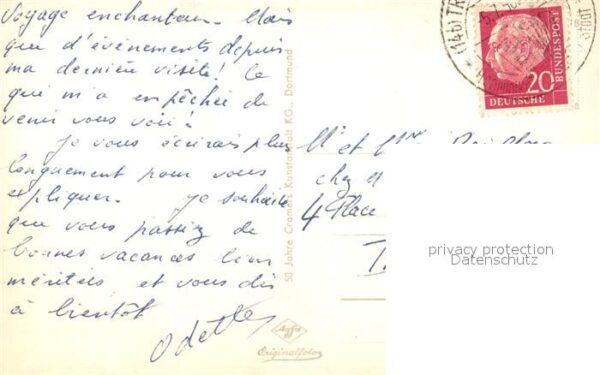 Voyage enchanteur. Mais
que d'évènements depuis
ma dernière visite! Ce
qui m'a empêchée de
venir vous voir!
Je vous écrirais plus
longuement pour vous
expliquer. Je souhaite
que vous passiez de
bonnes vacances bien
méritées, et vous dis
à bientôt
Odette
50 Jahre Cramers Kunstanstalt KG., Dortmund
Agfa
Originalfoto
(14b) TR
20
DEUTSCHE
BUNDESPOST
Mr et Mme
chez
4 Place
T.
privacy protection
Datenschutz